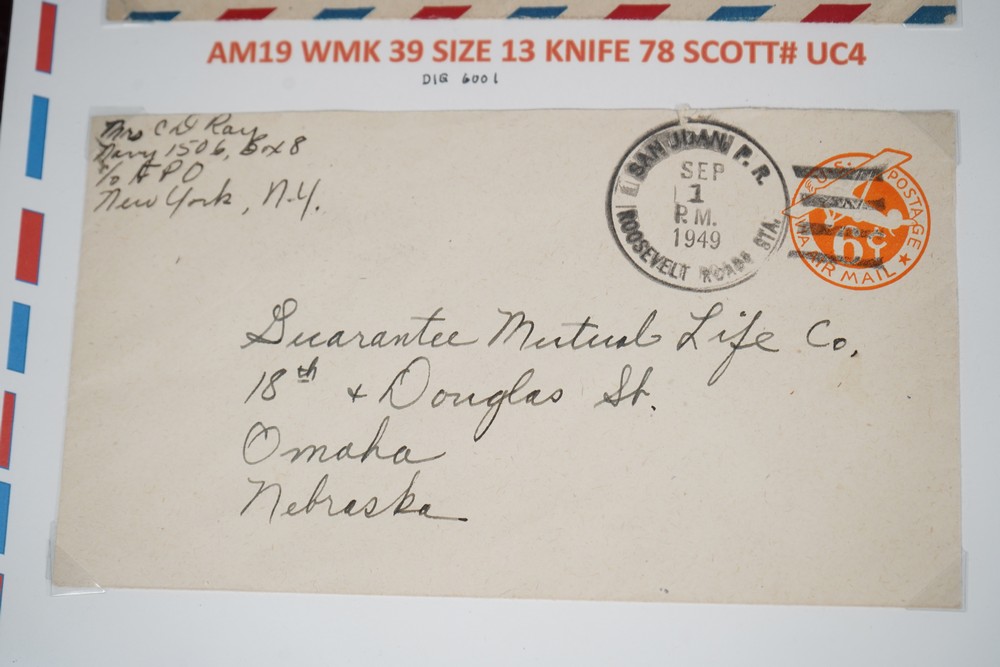 AM19 WMK 39 SIZE 13 KNIFE 78 SCOTT# UC4
DIG 6001
Mrs C D Ray
Navy 1506, Box 8
c/o A P O
New York, N.Y.
SAN JUAN, P. R.
SEP
1
P.M.
1949
ROOSEVELT ROADS STA.
U.S. POSTAGE
6¢
VIA AIR MAIL
Guarantee Mutual Life Co.
18th + Douglas St.
Omaha
Nebraska